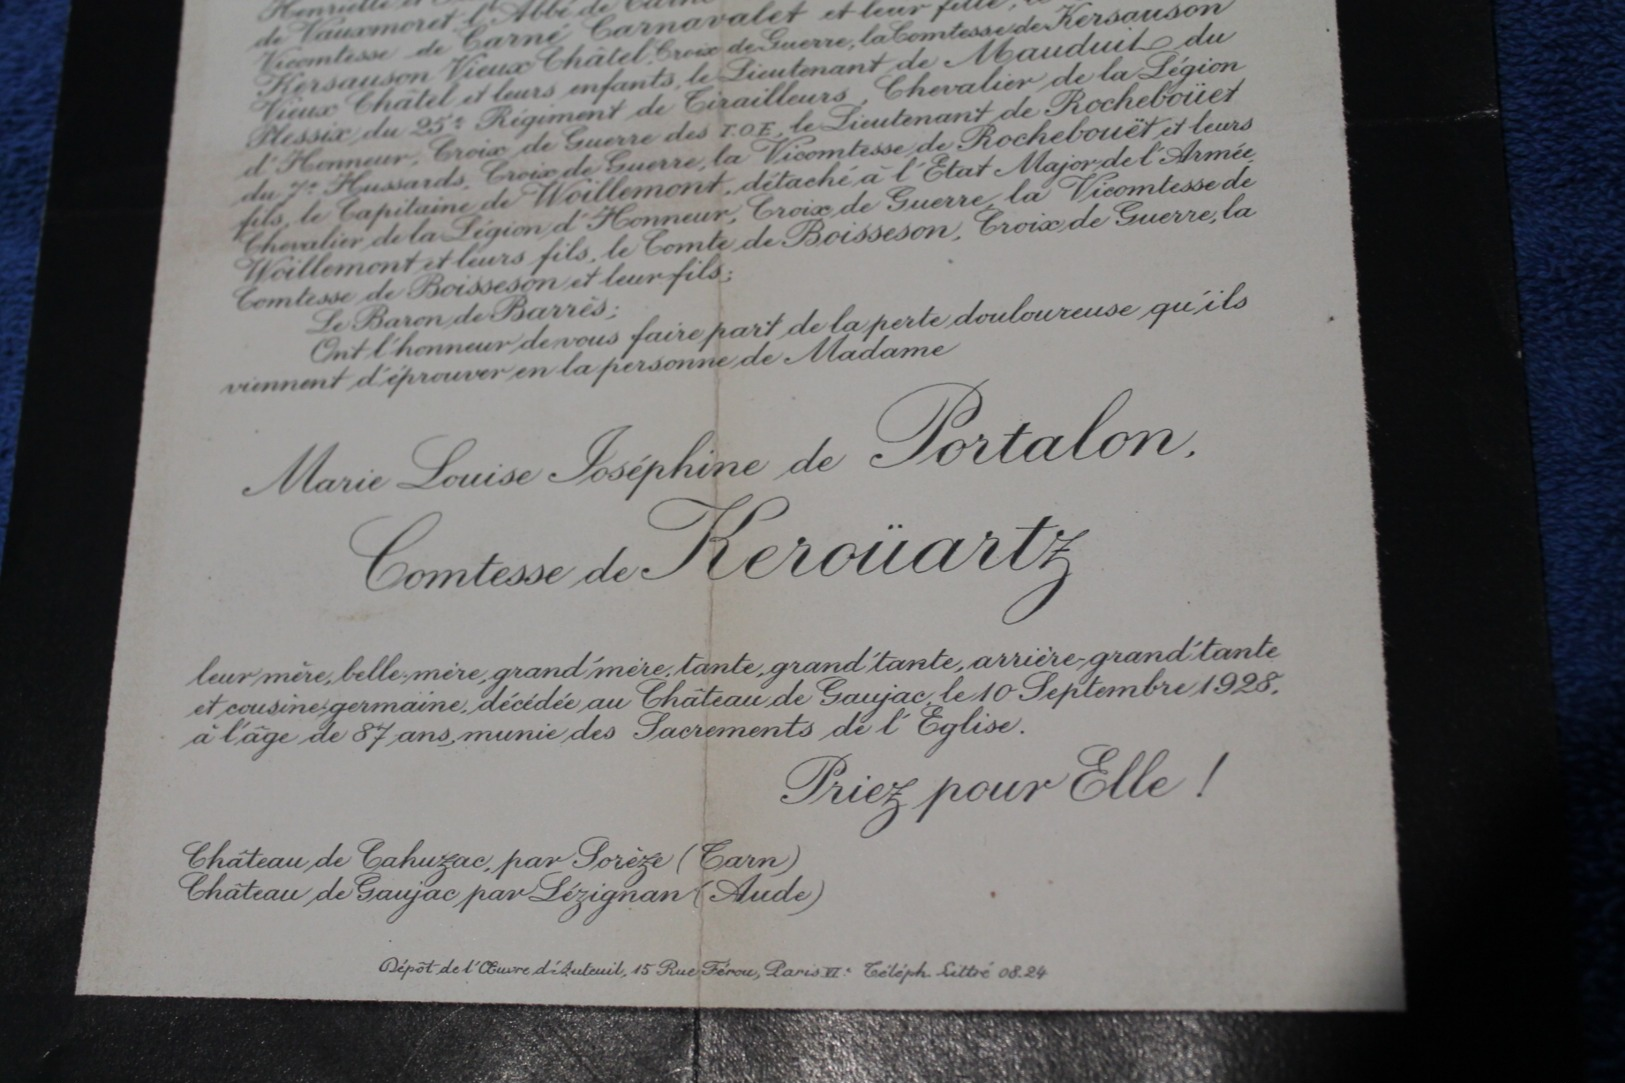 Henriette et
de Vauxmoret, l'Abbé de Carné
Vicomtesse de Carné Carnavalet et leur fille,
Kersauson Vieux Châtel, Croix de Guerre, la Comtesse de Kersauson
Vieux Châtel et leurs enfants, le Lieutenant de Mauduit du
Plessix du 25e Régiment de Tirailleurs, Chevalier de la Légion
d'Honneur, Croix de Guerre des T.O.E, le Lieutenant de Rochebouët
du 7e Hussards, Croix de Guerre, la Vicomtesse de Rochebouët et leurs
fils, le Capitaine de Woillemont, détaché à l'Etat Major de l'Armée,
Chevalier de la Légion d'Honneur, Croix de Guerre, la Vicomtesse de
Woillemont et leurs fils, le Comte de Boisseson, Croix de Guerre, la
Comtesse de Boisseson et leur fils;
Le Baron de Barrès;
Ont l'honneur de vous faire part de la perte douloureuse qu'ils
viennent d'éprouver en la personne de Madame
Marie Louise Joséphine de Portalon,
Comtesse de Keroüartz
leur mère, belle-mère, grand'mère, tante, grand'tante, arrière-grand'tante
et cousine-germaine, décédée au Château de Gaujac, le 10 Septembre 1928,
à l'âge de 87 ans, munie des Sacrements de l'Eglise.
Priez pour Elle !
Château de Cahuzac, par Sorèze (Tarn)
Château de Gaujac par Lézignan (Aude)
Dépôt de l'Œuvre d'Auteuil, 15 Rue Férou, Paris VIe Téléph. Littré 08.24